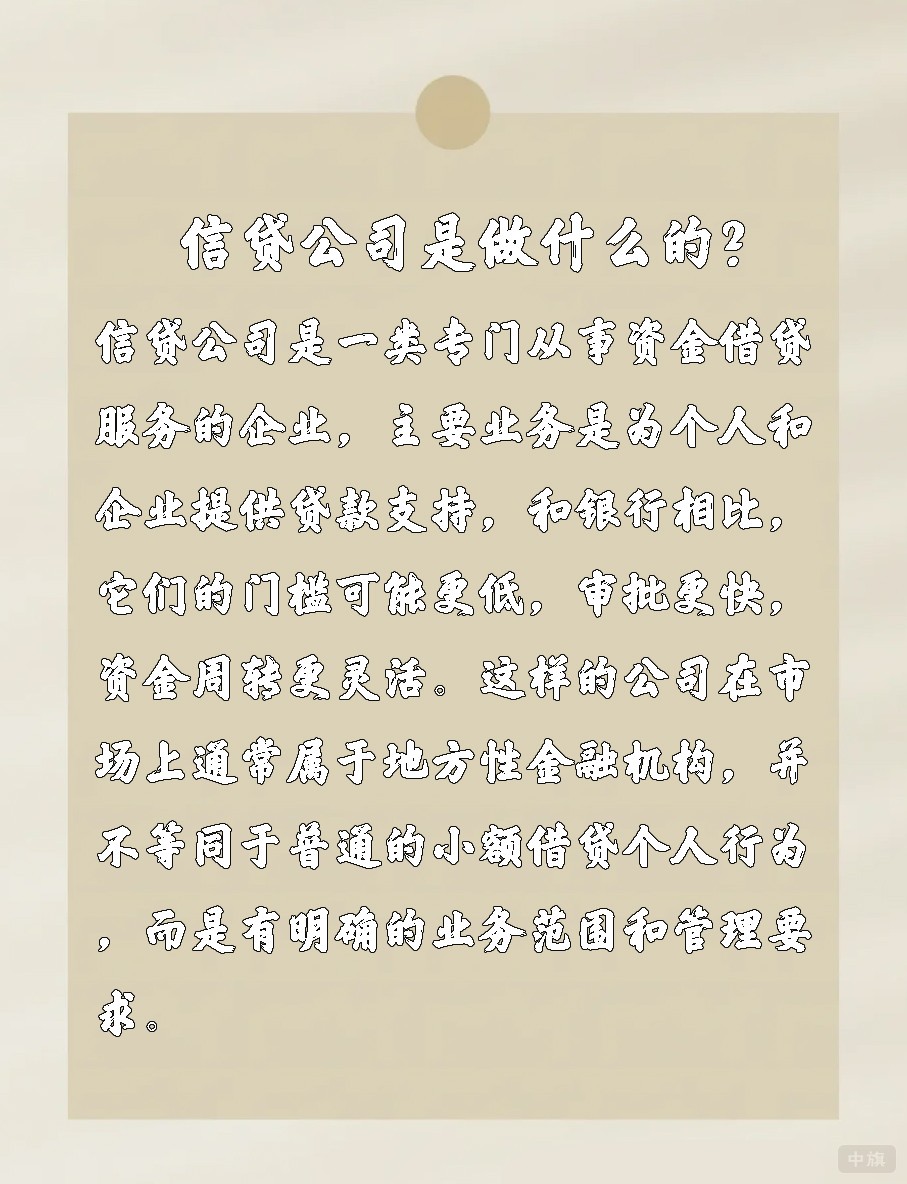 信贷公司是做什么的?
信贷公司是一类专门从事资金借贷
服务的企业，主要业务是为个人和
企业提供贷款支持，和银行相比，
它们的门槛可能更低，审批更快，
资金周转更灵活。这样的公司在市
场上通常属于地方性金融机构，并
不等同于普通的小额借贷个人行为
，而是有明确的业务范围和管理要
求。
中旗